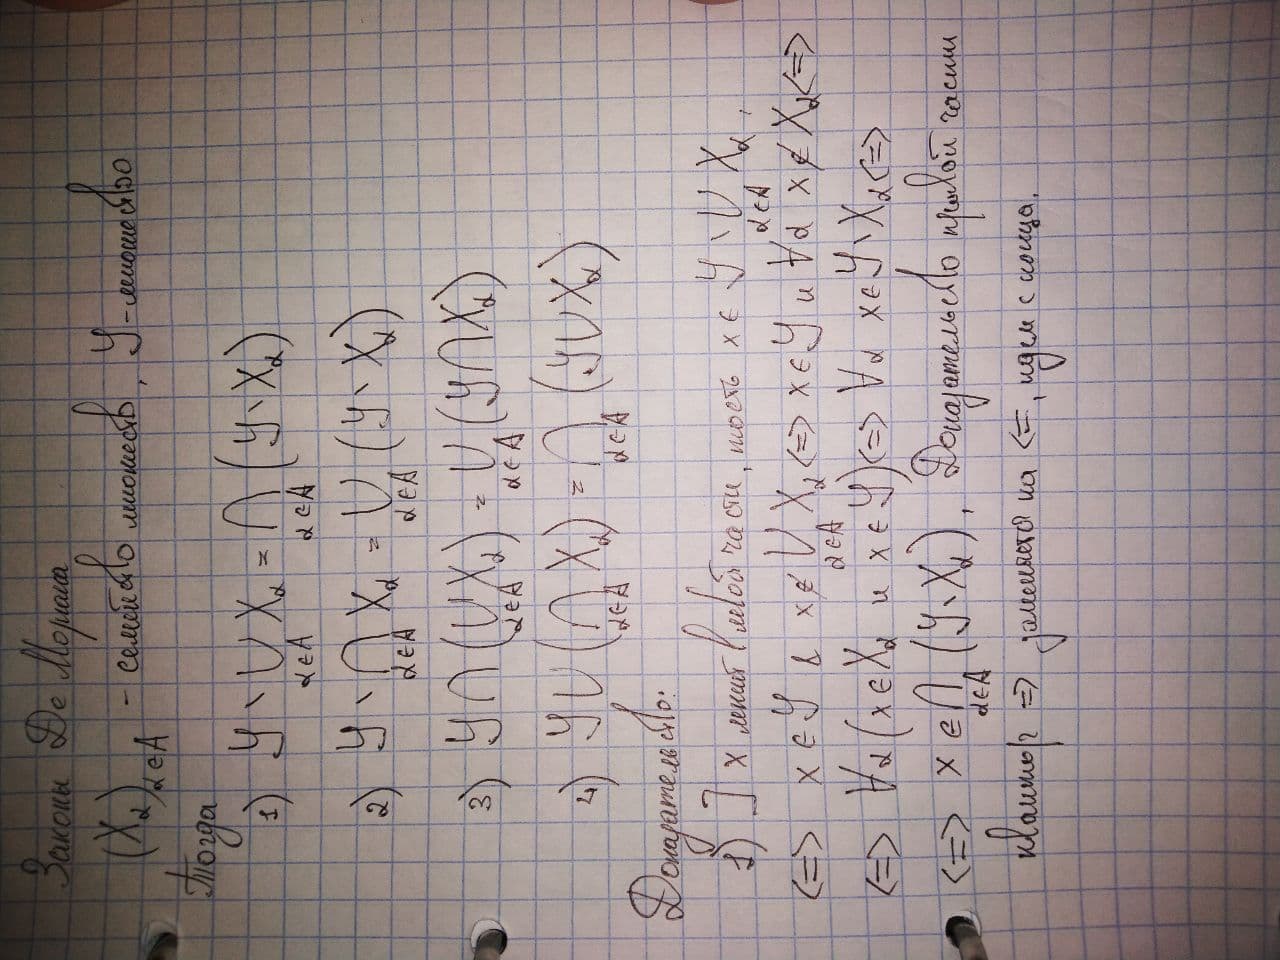 Законы Де Моргана
(X_α)_{α∈A} - семейство множеств, Y - множество
Тогда
1) Y \ ∪_{α∈A} X_α = ∩_{α∈A} (Y \ X_α)
2) Y \ ∩_{α∈A} X_α = ∪_{α∈A} (Y \ X_α)
3) Y ∩ (∪_{α∈A} X_α) = ∪_{α∈A} (Y ∩ X_α)
4) Y ∪ (∩_{α∈A} X_α) = ∩_{α∈A} (Y ∪ X_α)
Доказательство:
1) ] x лежит в левой части, тость x ∈ Y \ ∪_{α∈A} X_α,
<=> x ∈ Y & x ∉ ∪_{α∈A} X_α <=> x ∈ Y и ∀α x ∉ X_α <=>
<=> ∀α (x ∈ X_α и x ∈ Y) <=> ∀α x ∈ Y \ X_α <=>
<=> x ∈ ∩_{α∈A} (Y \ X_α), Доказательство правой части
квантор => заменяется на <=, идем с конца.